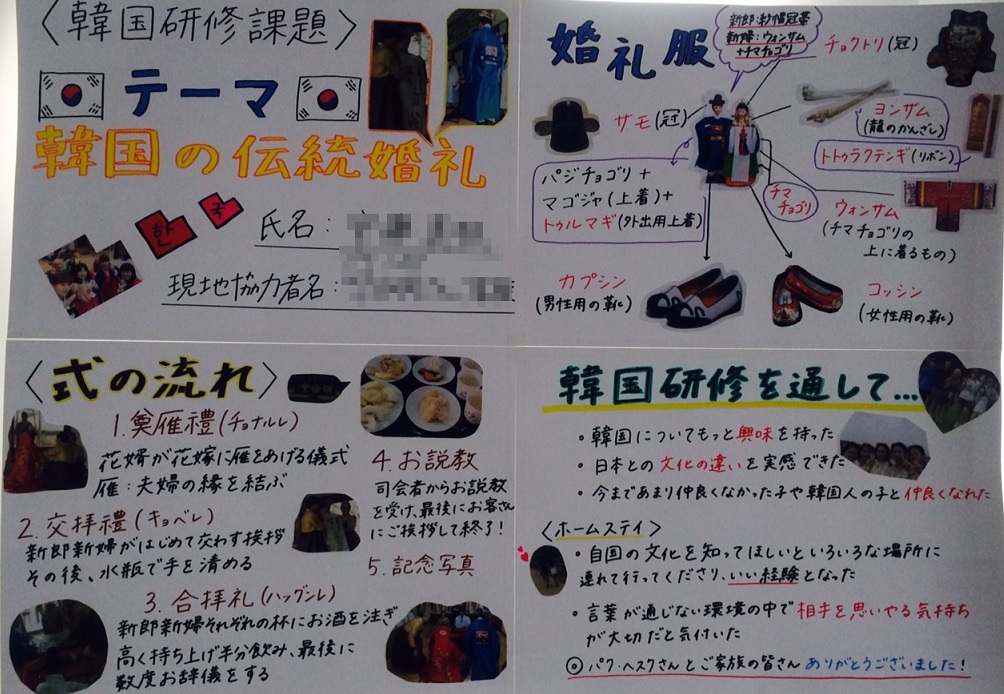 〈韓国研修課題〉
テーマ
韓国の伝統婚礼
한국
氏名:
現地協力者名:
婚礼服
新郎:紗帽冠帯
新婦:ウォンサム
+チマチョゴリ
チョクトリ(冠)
サモ(冠)
ヨンザム
(龍のかんざし)
トトゥラクテンギ(リボン)
パジチョゴリ+
マゴジャ(上着)+
トゥルマギ(外出用上着)
チマ
チョゴリ
ウォンサム
(チマチョゴリの
上に着るもの)
カプシン
(男性用の靴)
コッシン
(女性用の靴)
〈式の流れ〉
1.奠雁禮(チョナルレ)
花婿が花嫁に雁をあげる儀式
雁:夫婦の縁を結ぶ
2.交拝禮(キョベレ)
新郎新婦がはじめて交わす挨拶
その後、水瓶で手を清める
3.合拝礼(ハップンレ)
新郎新婦それぞれの杯にお酒を注ぎ
高く持ち上げ半分飲み、最後に
数度お辞儀をする
4.お説教
司会者からお説教
を受け、最後にお客さん
にご挨拶して終了!
5.記念写真
韓国研修を通して...
・韓国についてもっと興味を持った
・日本との文化の違いを実感できた
・今まであまり仲良くなかった子や韓国人の子と仲良くなれた
〈ホームステイ〉
・自国の文化を知ってほしいといろいろな場所に
連れて行ってくださり、いい経験となった
・言葉が通じない環境の中で相手を思いやる気持ち
が大切だと気付いた
◎パク・ヘスクさんとご家族の皆さんありがとうございました!